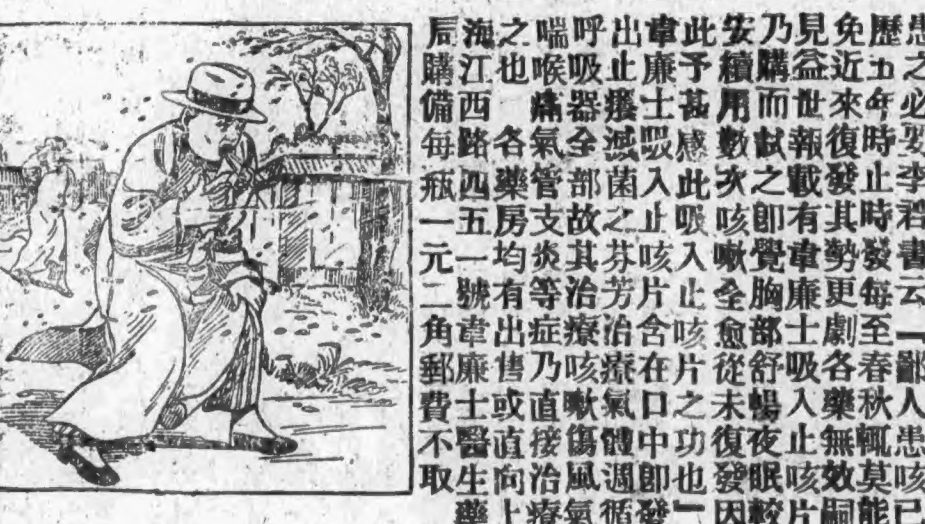 患之必要李君書云「鄙人患咳已
歷五年時止時發每至春秋輒莫能
免近來復發其勢更劇各藥無效嗣
見益世報載有韋廉士吸入止咳片
乃購而試之即覺胸部舒暢夜眠較
安續用數次咳嗽全愈從未復發因
此予甚感此吸入止咳片之功也」
韋廉士吸入止咳片含在口中即發
出止癢滅菌之芬芳治療氣體週循
呼吸器全部故其治療咳嗽傷風氣
喘喉痛氣管支炎等症乃直接治療
之也 各藥房均有出售或直向上
海江西路四五一號韋廉士醫生藥
局購備每瓶一元二角郵費不取